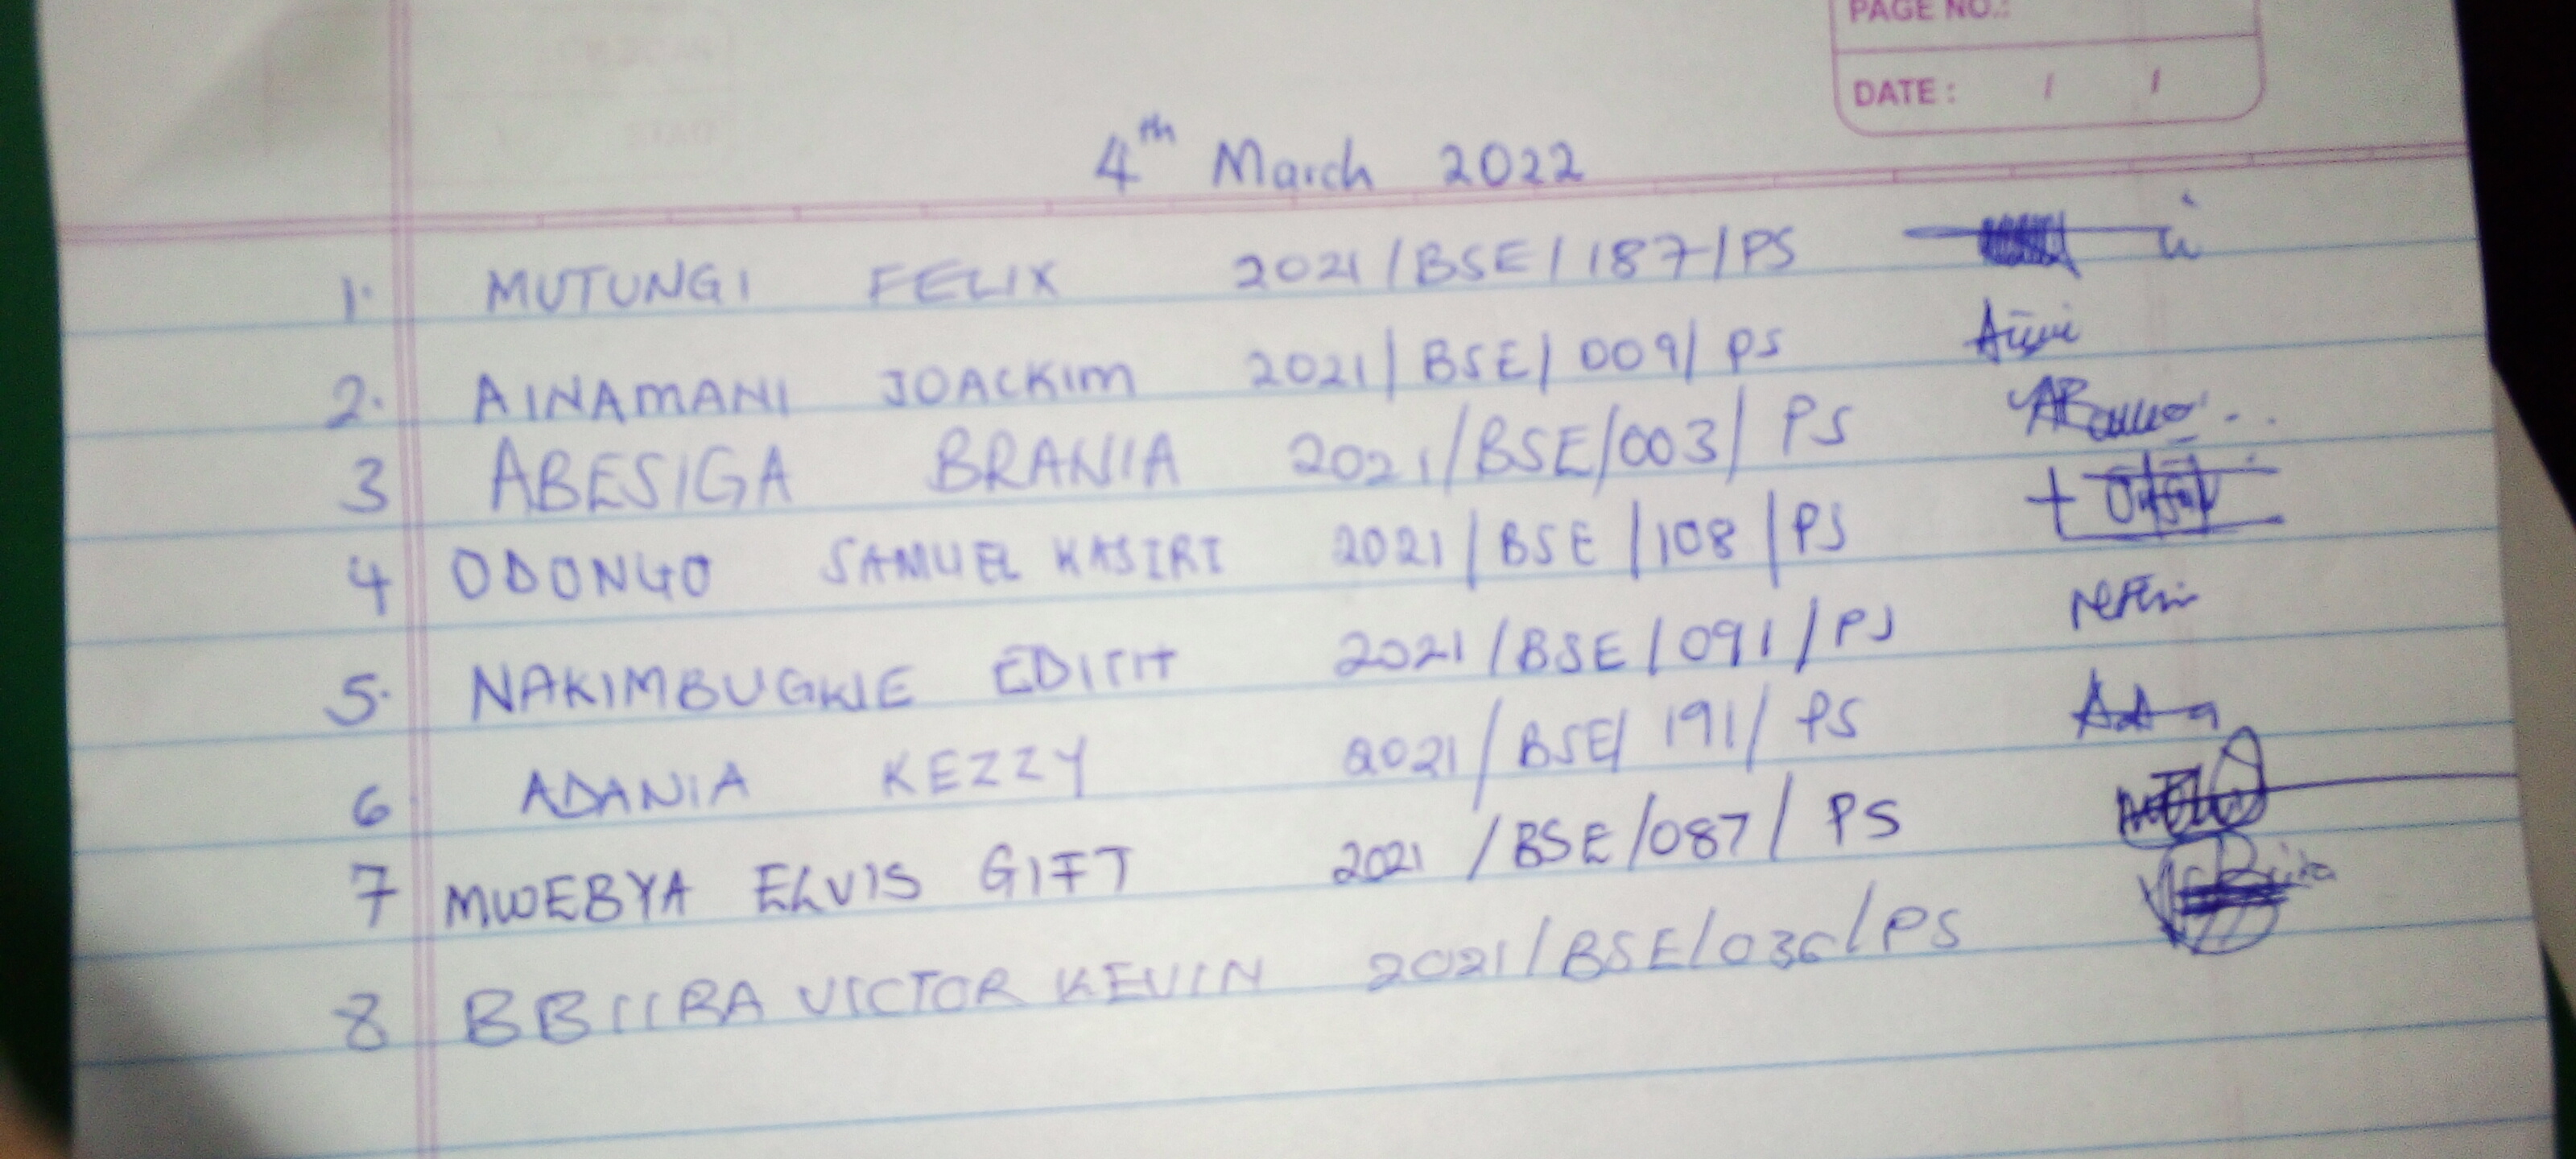 PAGE NO.:
DATE : / /
4th March 2022
1. MUTUNGI FELIX 2021/BSE/187/PS
2. AINAMANI JOACKIM 2021/BSE/009/PS
3 ABESIGA BRANIA 2021/BSE/003/PS
4 ODONGO SAMUEL KASIRI 2021/BSE/108/PS
5. NAKIMBUGWE EDITH 2021/BSE/091/PS
6 ADANIA KEZZY 2021/BSE/191/PS
7 MWEBYA ELVIS GIFT 2021/BSE/087/PS
8 BBIIRA VICTOR KEVIN 2021/BSE/036/PS